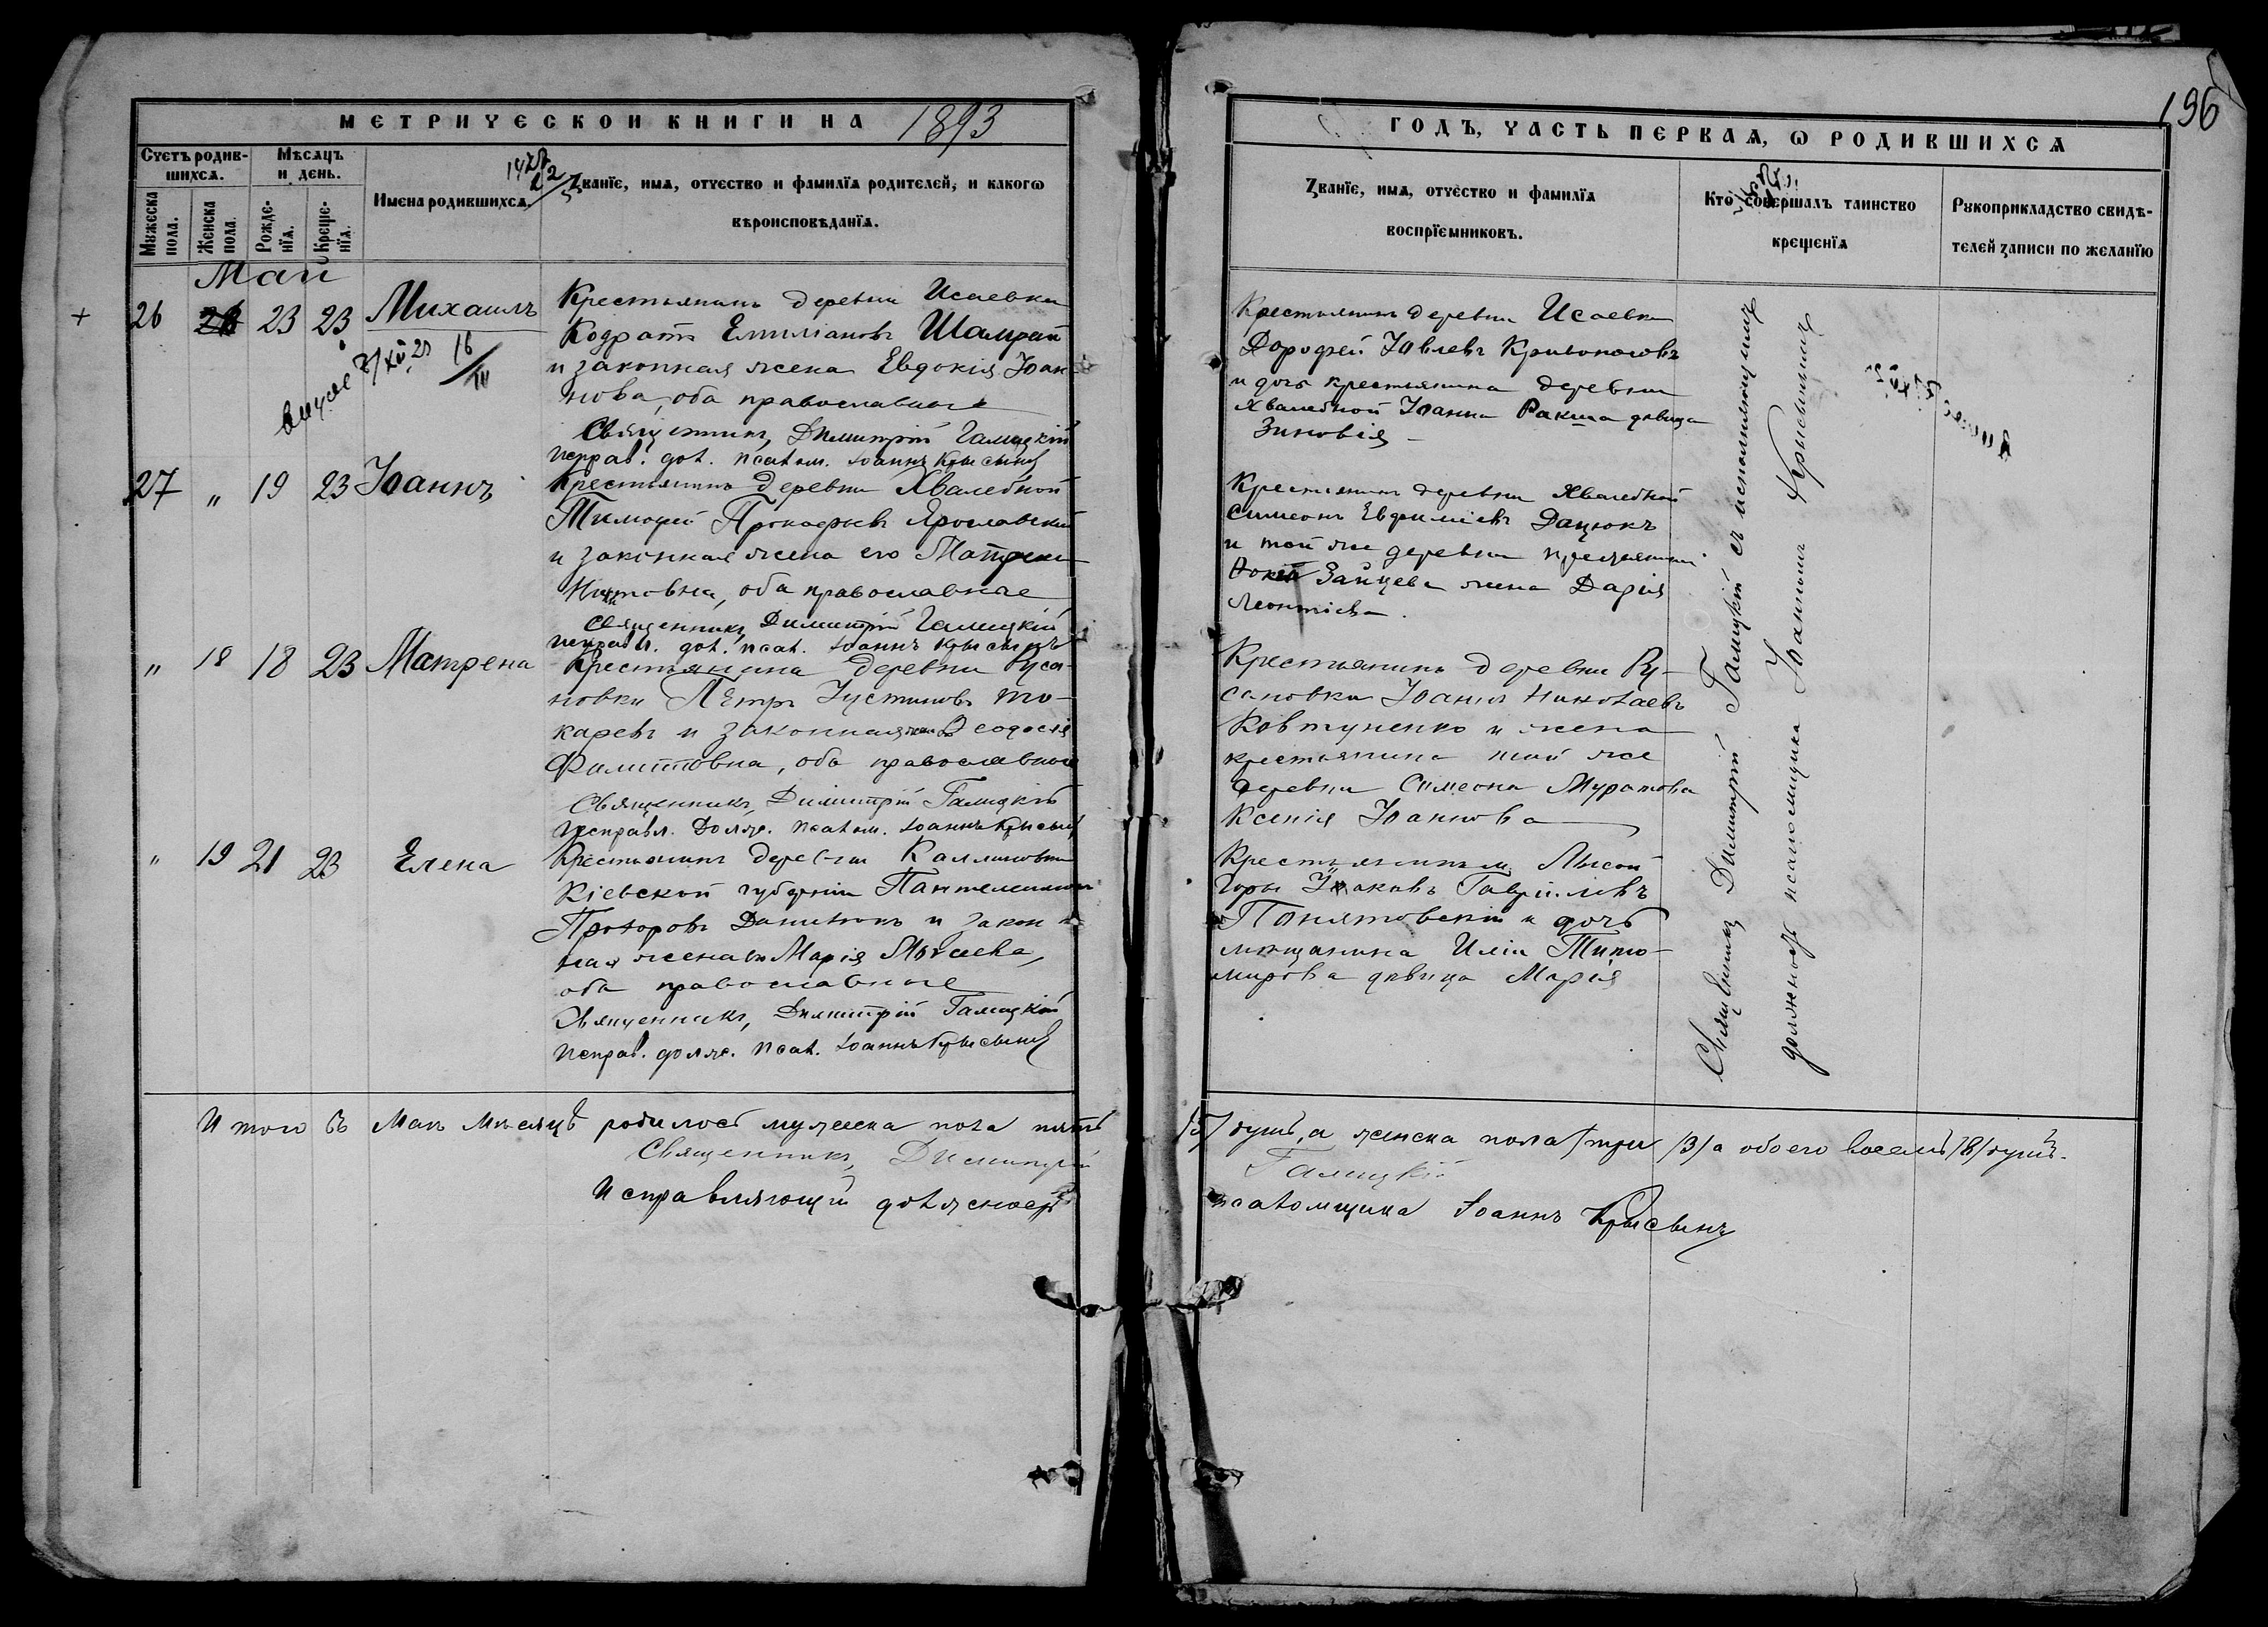 МЕТРИЧЕСКОЙ КНИГИ НА 1893
Счетъ родив-
шихся.
Мѣсяцъ
и день.
Мужеска
пола.
Женска
пола
Рожде-
нія.
Креще-
нія.
Имена родившихся.
Званіе, имя, отчество и фамилія родителей, и какого
вѣроисповѣданія.
Май
+ 26 23 23 Михаилъ
Крестьянинъ деревни Исаевки
Кодратъ Емиліановъ Шамрай
и законная жена Евдокія Іоан-
нова, оба православные
16/IV
Священникъ, Димитрій Галицкій
исправ. дол. псалом. Іоаннъ Крысынъ
27 „ 19 23 Іоаннъ
Крестьянинъ деревни Хвалебной
Тимофей Прокофьевъ Ярославскій
и законная жена его Матрена
оба православные
Священникъ, Димитрій Галицкій
исправл. дол. псал. Іоаннъ Крысынъ
„ 18 18 23 Матрена
Крестьянина деревни Руса-
новки Петръ Іустиновъ То-
каревъ и законная жена Ѳеодосія
Филиповна, оба православные
Священникъ, Димитрій Галицкій
Исправл. Долж. псалом. Іоаннъ Крысынъ
„ 19 21 23 Елена
Крестьянинъ деревни Каллиновки
Кіевской губерніи Пантелеимонъ
Прохоровъ Данилюкъ и закон-
ная жена его Марія
оба православные
Священникъ, Димитрій Галицкій
исправ. долж. псал. Іоаннъ Крысынъ
Итого въ Маѣ мѣсяцѣ родилось мужеска пола пять
Священникъ, Димитрій
Исправляющій должность
196
ГОДЪ, ЧАСТЬ ПЕРВАЯ, О РОДИВШИХСЯ
Званіе, имя, отчество и фамилія
воспріемниковъ.
Кто совершалъ таинство
крещенія
Рукоприкладство свидѣ-
телей записи по желанію
Крестьянинъ деревни Исаевки
Дорофей Іовлевъ Кривоносовъ
и дочь крестьянина деревни
Хвалебной Іоанна Ракша дѣвица
Зиновія
Крестьянинъ деревни Хвалебной
Симеонъ Евфиміевъ Дацюкъ
и той же деревни крестьянина
Зайцева жена Дарія
Леонтіева.
Крестьянинъ деревни Ру-
сановки Іоаннъ Николаевъ
Ковтуненко и жена
крестьянина той же
деревни Симеона Муратова
Ксенія Іоаннова
Крестьянинъ Лысой
Горы Іаковъ Гавріиловъ
Понятовскій и дочь
мѣщанина Иліи Тихо-
мирова дѣвица Марія
Священникъ Димитрій Галицкій съ исполняющимъ
должность псаломщика Іоанномъ Крысынымъ
/5/ душъ, а женска пола три /3/ а обоего восемь /8/ душъ.
Галицкій
псаломщика Іоаннъ Крысынъ